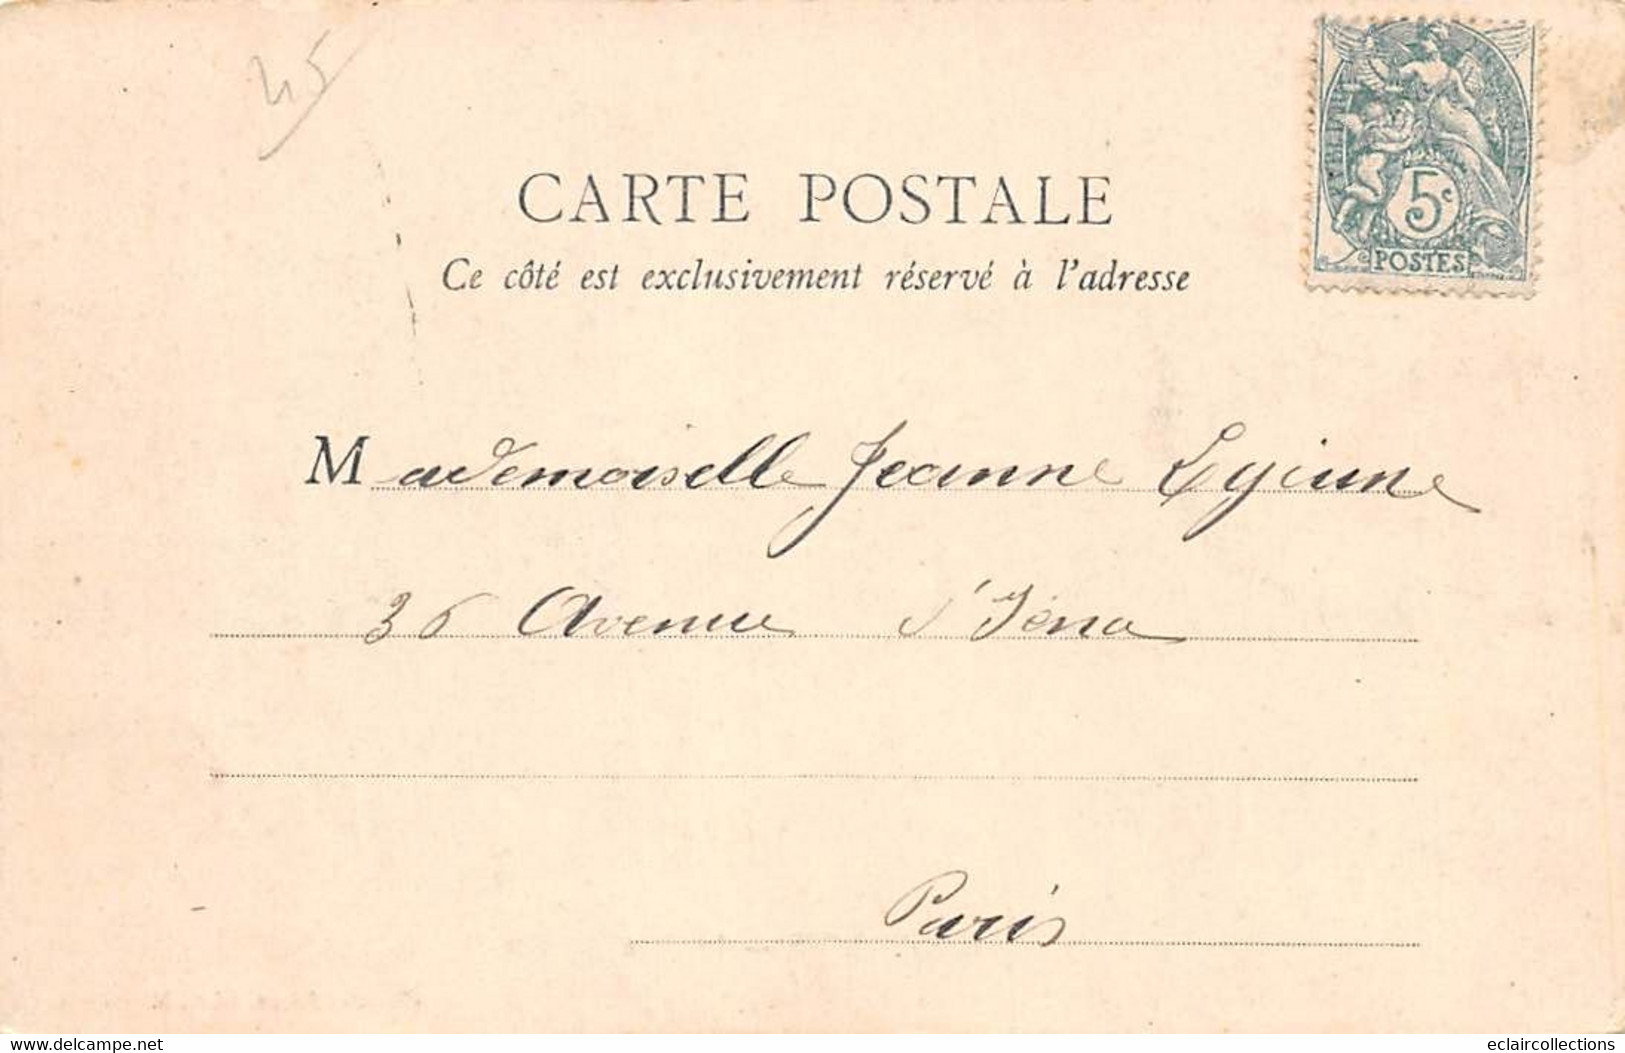 45
CARTE POSTALE
Ce côté est exclusivement réservé à l'adresse
5c
POSTES
Mademoiselle Jeanne
36 Avenue d'Iéna
Paris
www.delcampe.net
eclaircollections